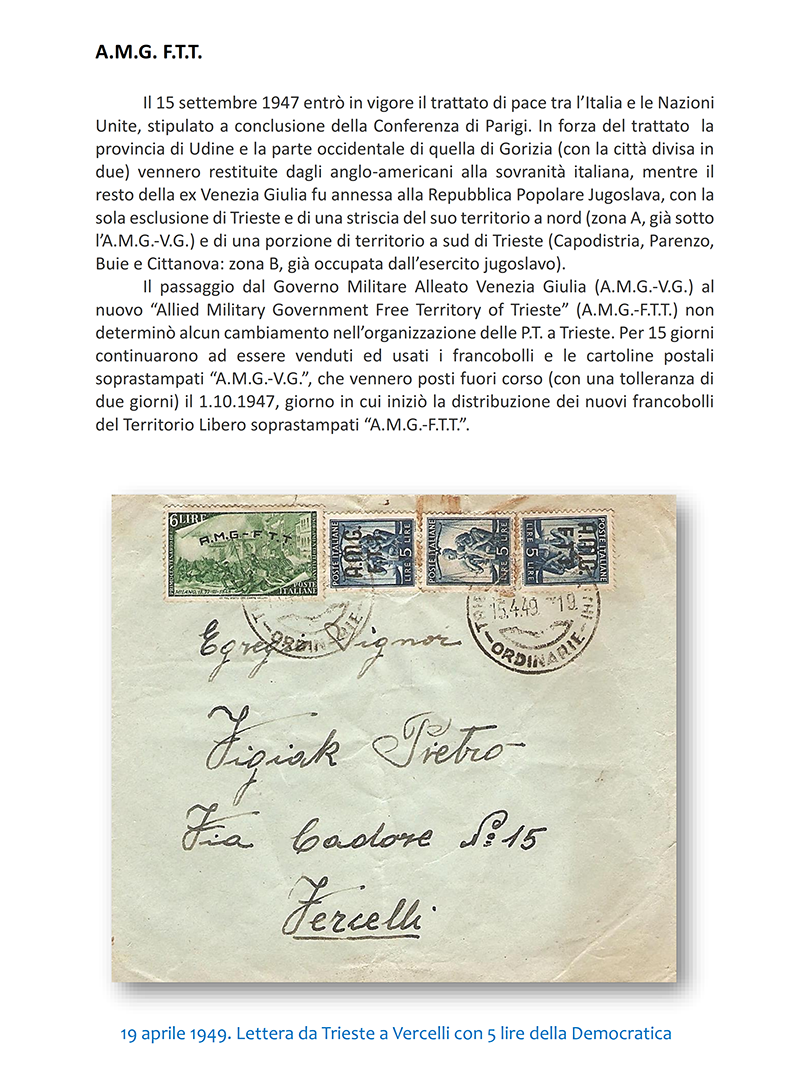 A.M.G. F.T.T.
Il 15 settembre 1947 entrò in vigore il trattato di pace tra l’Italia e le Nazioni
Unite, stipulato a conclusione della Conferenza di Parigi. In forza del trattato la
provincia di Udine e la parte occidentale di quella di Gorizia (con la città divisa in
due) vennero restituite dagli anglo-americani alla sovranità italiana, mentre il
resto della ex Venezia Giulia fu annessa alla Repubblica Popolare Jugoslava, con la
sola esclusione di Trieste e di una striscia del suo territorio a nord (zona A, già sotto
l’A.M.G.-V.G.) e di una porzione di territorio a sud di Trieste (Capodistria, Parenzo,
Buie e Cittanova: zona B, già occupata dall’esercito jugoslavo).
Il passaggio dal Governo Militare Alleato Venezia Giulia (A.M.G.-V.G.) al
nuovo “Allied Military Government Free Territory of Trieste” (A.M.G.-F.T.T.) non
determinò alcun cambiamento nell’organizzazione delle P.T. a Trieste. Per 15 giorni
continuarono ad essere venduti ed usati i francobolli e le cartoline postali
soprastampati “A.M.G.-V.G.”, che vennero posti fuori corso (con una tolleranza di
due giorni) il 1.10.1947, giorno in cui iniziò la distribuzione dei nuovi francobolli
del Territorio Libero soprastampati “A.M.G.-F.T.T.”.
6 LIRE
A.M.G.-F.T.T
POSTE
ITALIANE
POSTE ITALIANE
A.M.G.
LIRE 5
POSTE ITALIANE
LIRE 5
LIRE 5
POSTE ITALIANE
ORDINARIE
15.4.49
ORDINARIE
Signor
Figiak Pietro
Via Cadore No 15
Vercelli
19 aprile 1949. Lettera da Trieste a Vercelli con 5 lire della Democratica